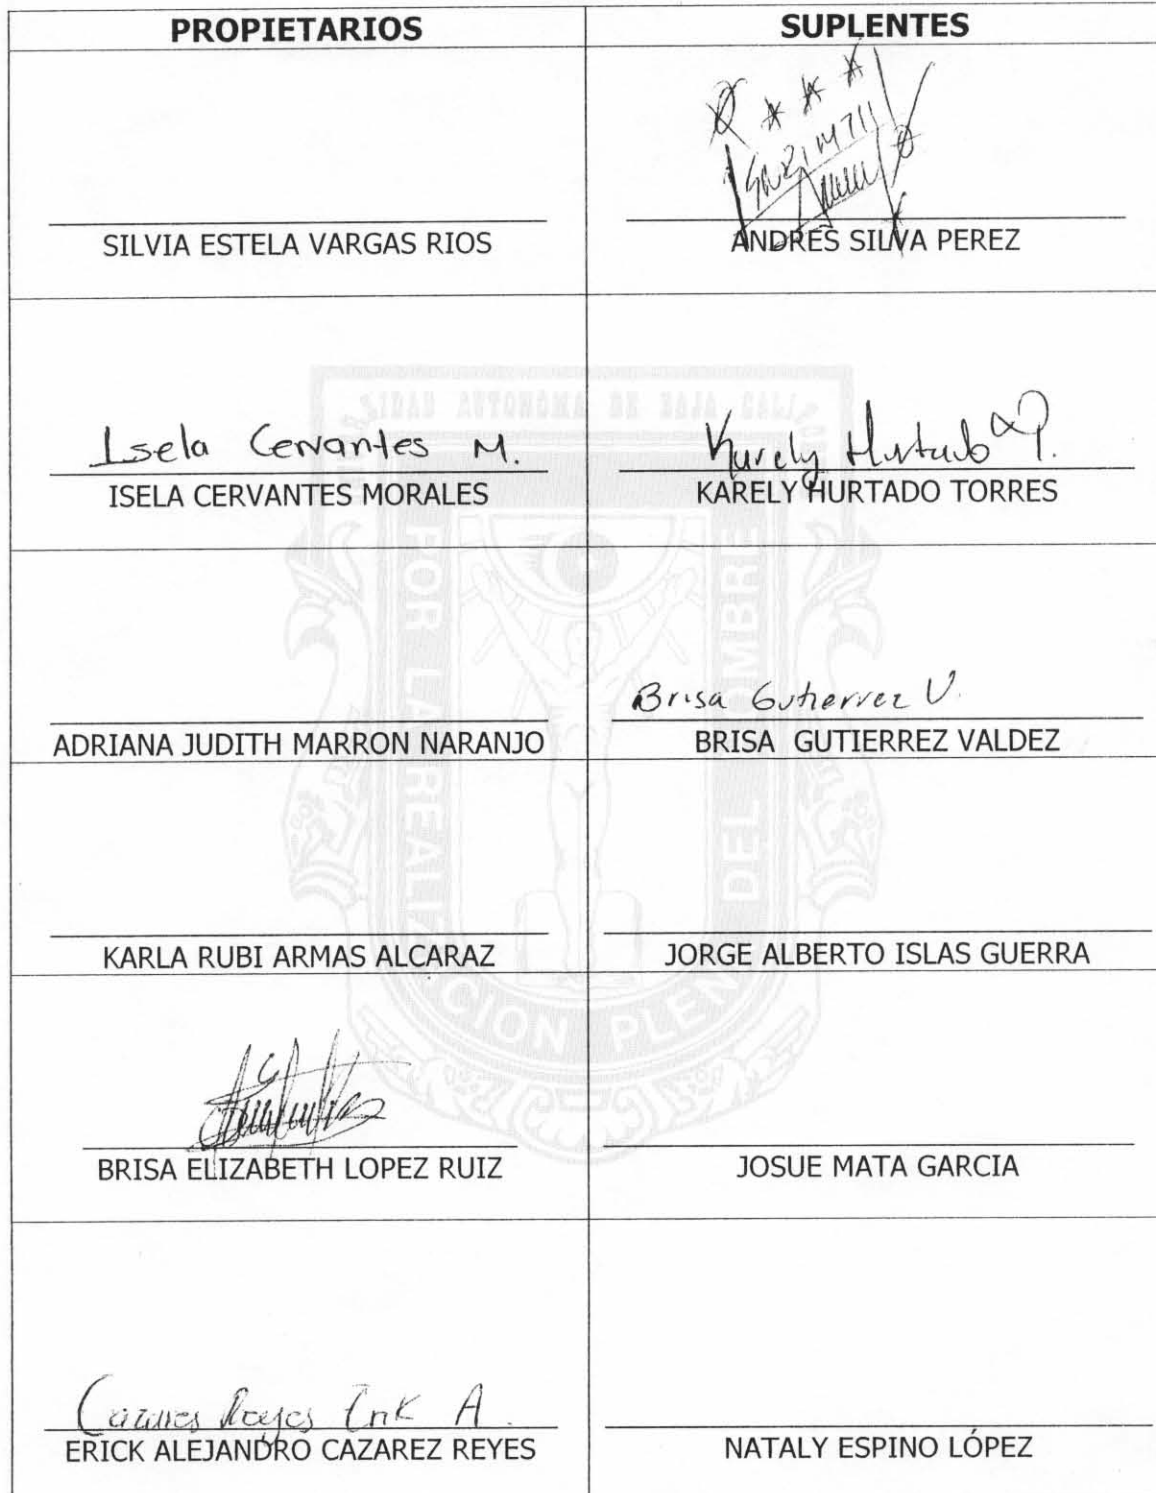 PROPIETARIOS
SUPLENTES
SILVIA ESTELA VARGAS RIOS
ANDRES SILVA PEREZ
Isela Cervantes M.
ISELA CERVANTES MORALES
Karely Hurtado
KARELY HURTADO TORRES
ADRIANA JUDITH MARRON NARANJO
Brisa Gutierrez V.
BRISA GUTIERREZ VALDEZ
KARLA RUBI ARMAS ALCARAZ
JORGE ALBERTO ISLAS GUERRA
BRISA ELIZABETH LOPEZ RUIZ
JOSUE MATA GARCIA
Cazares Reyes Erik A.
ERICK ALEJANDRO CAZAREZ REYES
NATALY ESPINO LÓPEZ
POR LA REALIZACION PLENA DEL HOMBRE